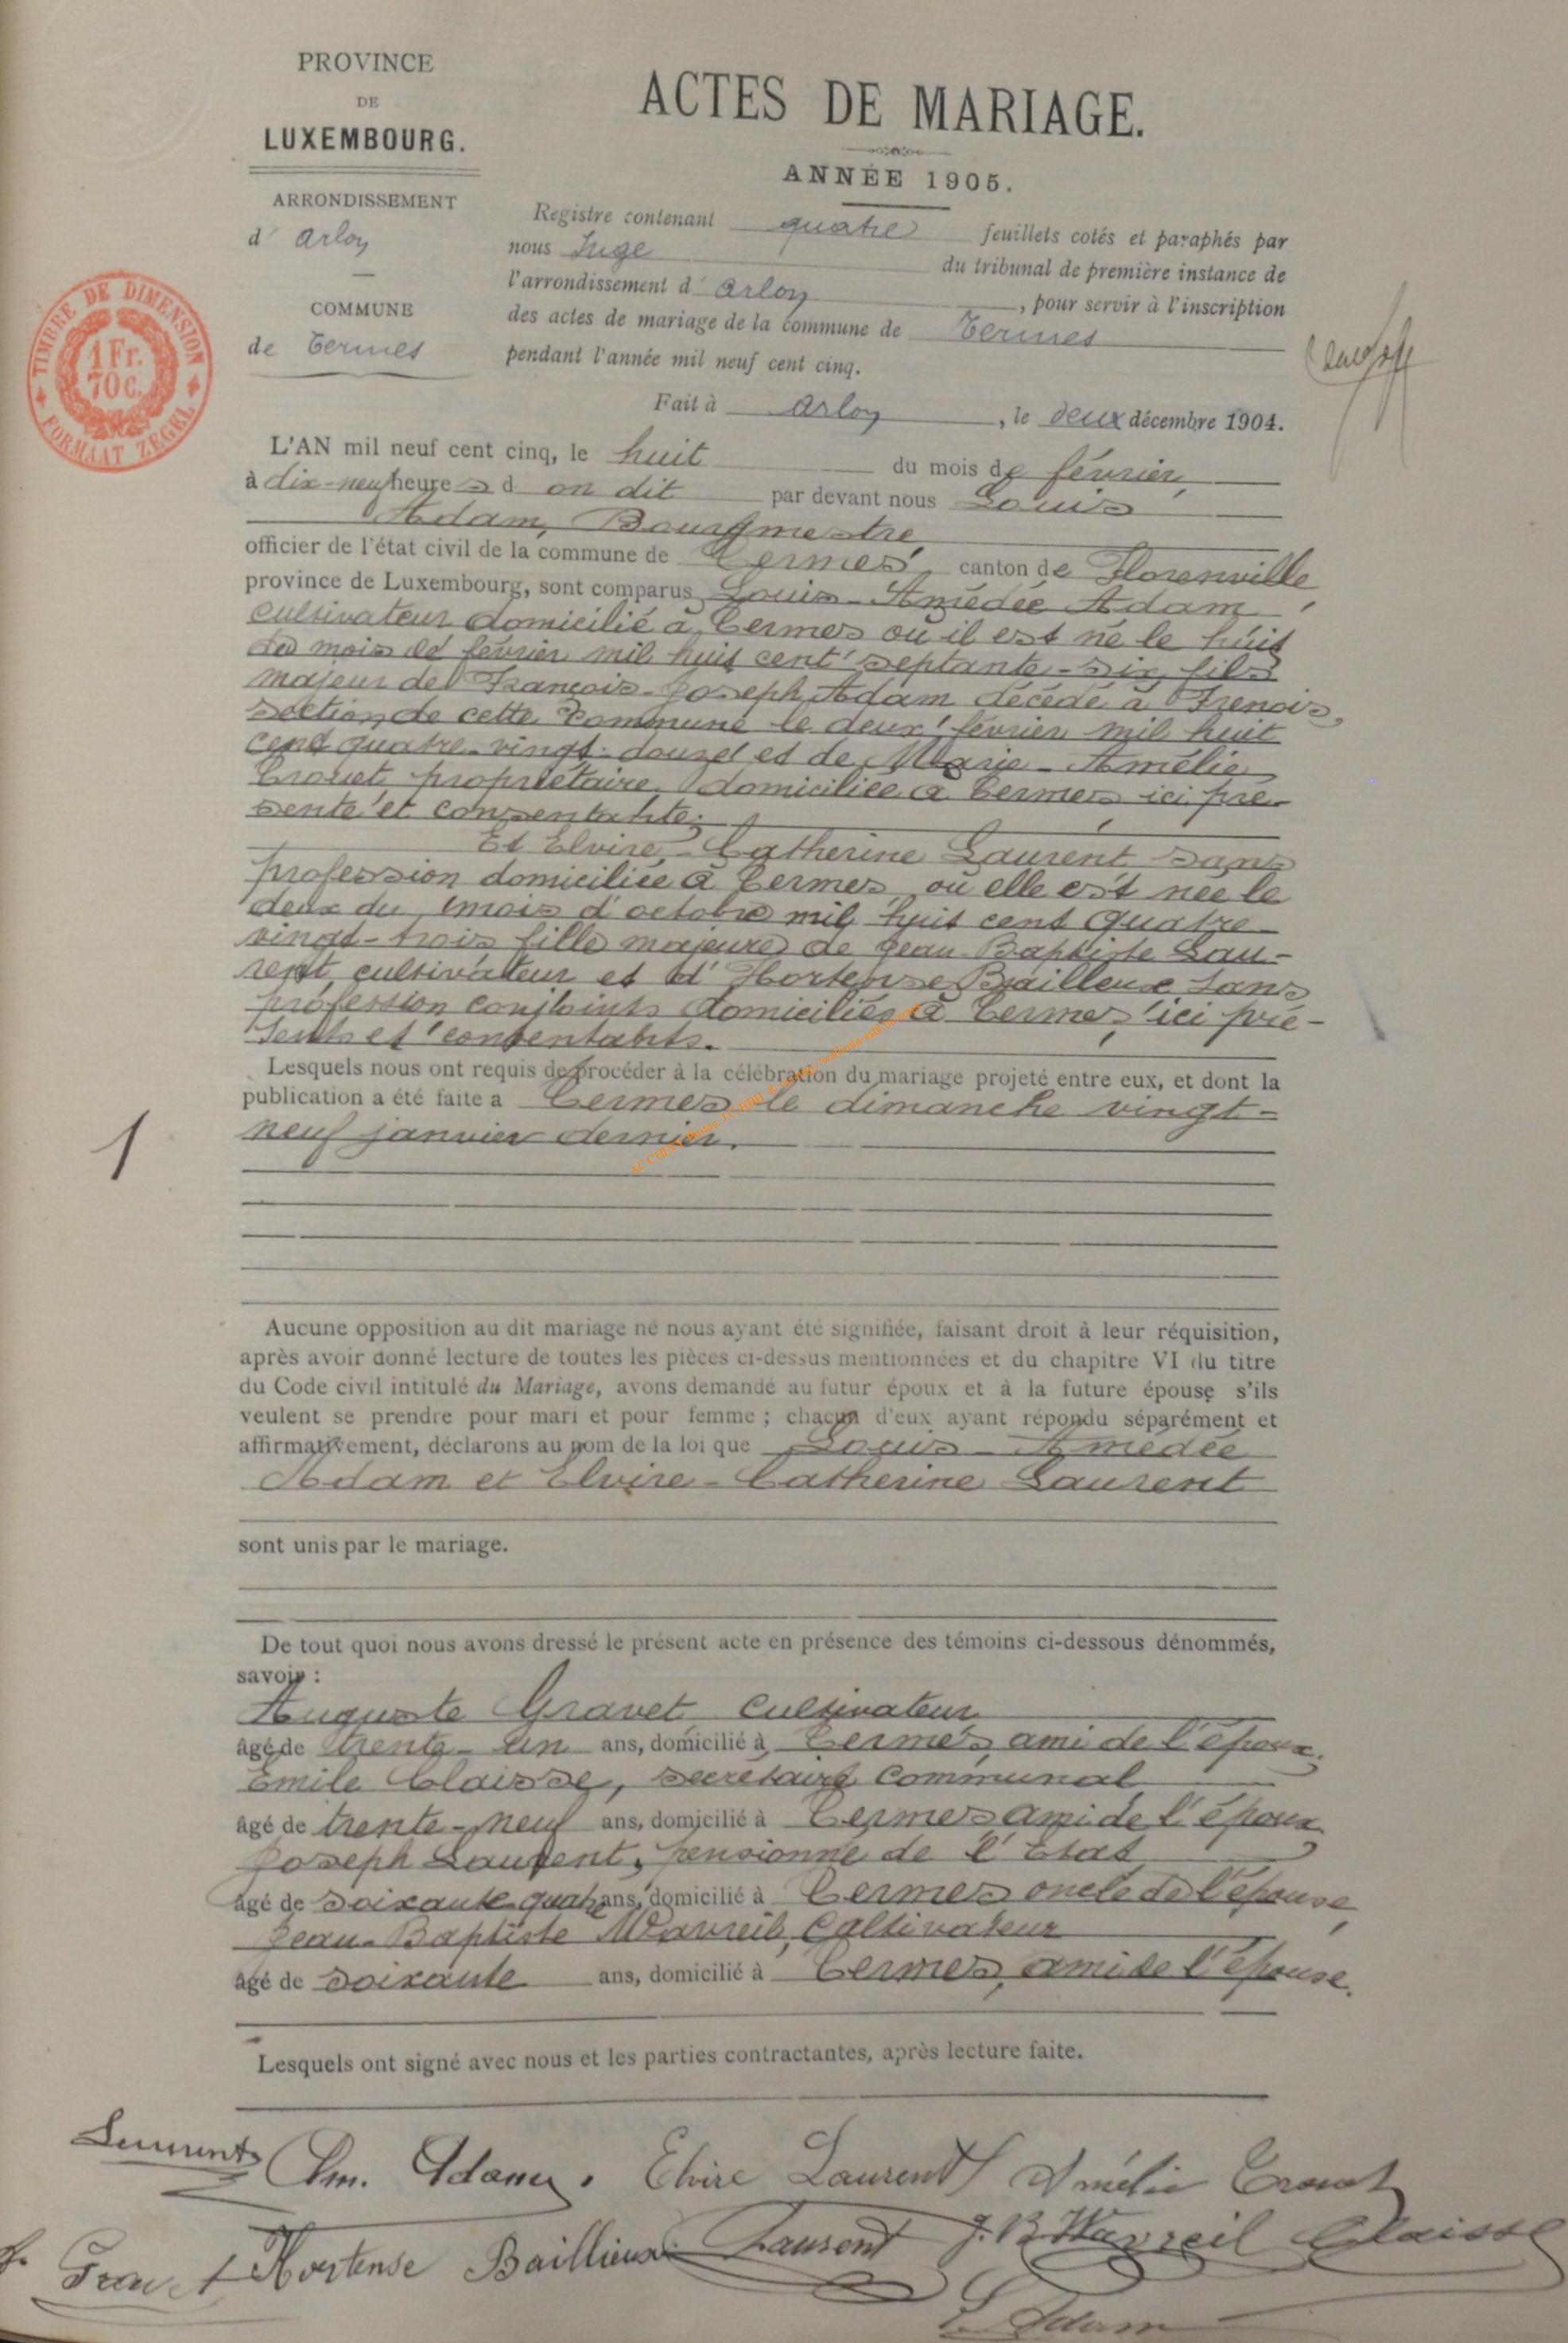 PROVINCE
DE
LUXEMBOURG.
ARRONDISSEMENT
d' Arlon
COMMUNE
de Termes
TIMBRE DE DIMENSION
1 Fr.
70 C.
FORMAAT ZEGEL
ACTES DE MARIAGE.
ANNÉE 1905.
Registre contenant quatre feuillets cotés et paraphés par
nous Juge du tribunal de première instance de
l'arrondissement d' Arlon, pour servir à l'inscription
des actes de mariage de la commune de Termes
pendant l'année mil neuf cent cinq.
Fait à Arlon, le deux décembre 1904.
L'AN mil neuf cent cinq, le huit du mois de février,
à dix-neuf heures d on dit par devant nous Louis
Adam, Bourgmestre
officier de l'état civil de la commune de Termes, canton de Florenville
province de Luxembourg, sont comparus Louis-Amédée Adam,
cultivateur domicilié à Termes où il est né le huit
du mois de février mil huit cent septante-six, fils
majeur de François-Joseph Adam décédé à Frenois,
section de cette commune le deux février mil huit
cent quatre-vingt-douze et de Marie-Amélie
Crouet, propriétaire, domiciliée à Termes, ici pré-
sente et consentante;
Et Elvire-Catherine Laurent sans
profession domiciliée à Termes, où elle est née le
deux du mois d'octobre mil huit cent quatre-
vingt-trois fille majeure de Jean-Baptiste Lau-
rent, cultivateur et d'Hortense Bailleux sans
profession conjoints domiciliés à Termes, ici pré-
sents et consentants.
Lesquels nous ont requis de procéder à la célébration du mariage projeté entre eux, et dont la
publication a été faite a Termes le dimanche vingt-
neuf janvier dernier.
1
Aucune opposition au dit mariage ne nous ayant été signifiée, faisant droit à leur réquisition,
après avoir donné lecture de toutes les pièces ci-dessus mentionnées et du chapitre VI du titre
du Code civil intitulé du Mariage, avons demandé au futur époux et à la future épouse s'ils
veulent se prendre pour mari et pour femme ; chacun d'eux ayant répondu séparément et
affirmativement, déclarons au nom de la loi que Louis-Amédée
Adam et Elvire-Catherine Laurent
sont unis par le mariage.
De tout quoi nous avons dressé le présent acte en présence des témoins ci-dessous dénommés,
savoir :
Auguste Gravet, cultivateur
âgé de trente-un ans, domicilié à Termes, ami de l'époux.
Emile Claisse, secrétaire communal
âgé de trente-neuf ans, domicilié à Termes ami de l'époux
Joseph Laurent, pensionné de l'Etat
âgé de soixante-quatre ans, domicilié à Termes oncle de l'épouse,
Jean-Baptiste Wavreil, Cultivateur
âgé de soixante ans, domicilié à Termes, ami de l'épouse.
Lesquels ont signé avec nous et les parties contractantes, après lecture faite.
Laurent Am. Adam. Elvire Laurent Amélie Crouet
Gravet Hortense Baillieux Laurent J.B Wavreil Claisse
L. Adam